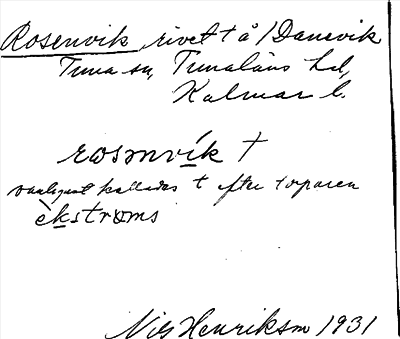 Rosenvik, rivet t å /Danevik
Tuna sn, Tunaläns hd,
Kalmar l.
rosmvík †
vanligast kallades t efter torparen
èkstrøms
Nils Henriksm 1931